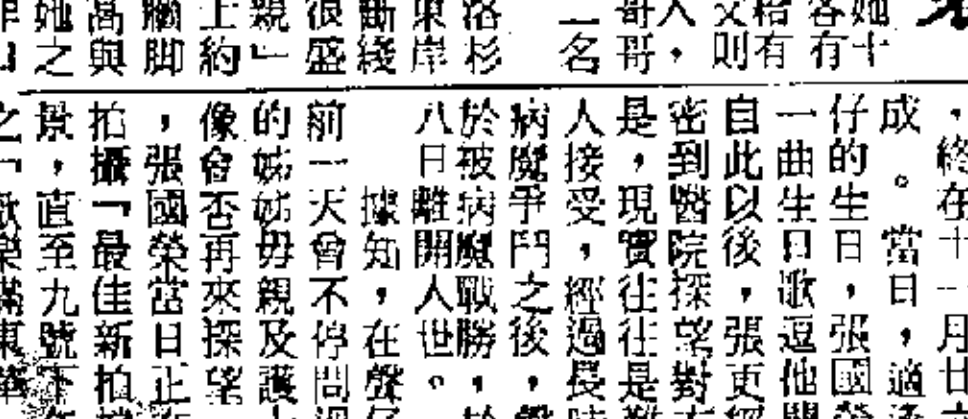 她十
各有
給有
父則
人，
哥哥
一名
洛杉
東岸
斷綫
很盛
親」
上約
脚
高與
她之
，終在十一月廿
成。當日，適
仔的生日，張國
一曲生日歌逗他
自此以後，張更
密到醫院探望對
是，現實往往是
人接受，經過長
病魔爭鬥之後，
於被病魔戰勝，
八日離開人世。
據知，在聲
前一天曾不停問
的姊姊毋親及護
像會否再來探望
，張國榮當日正
拍攝「最佳新拍
景，直至九號下
之「歡樂滿東華